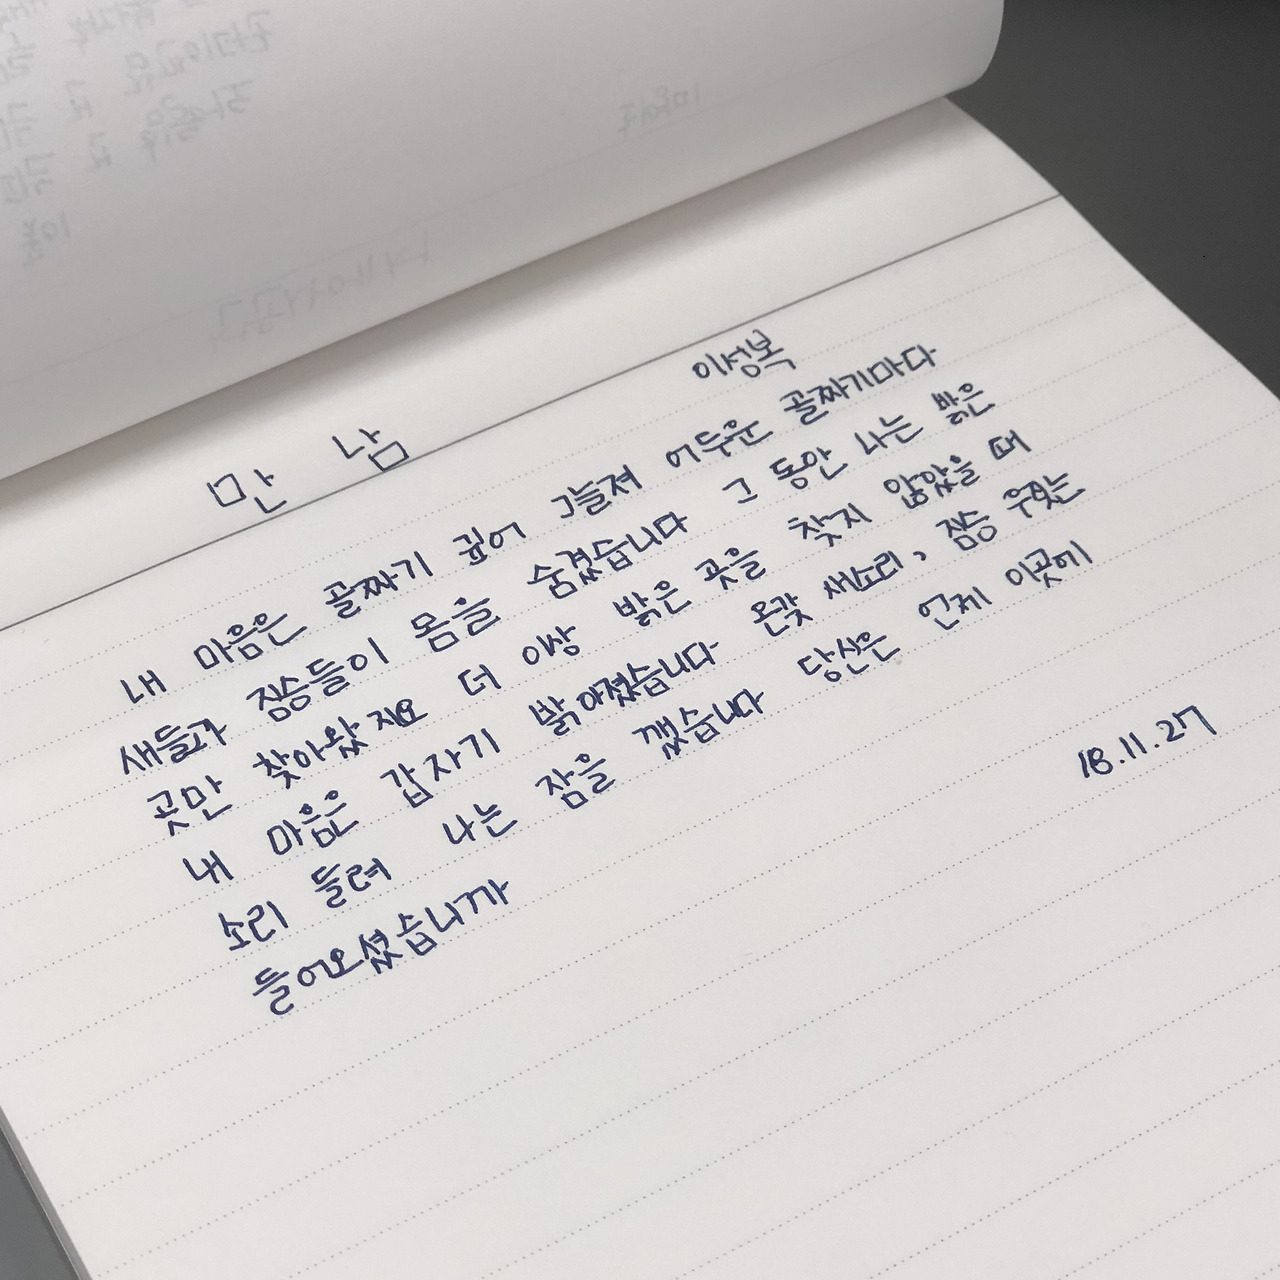 만 남
이성복
내 마음은 골짜기 깊어 그늘져 어두운 골짜기마다
새들과 짐승들이 몸을 숨겼습니다 그 동안 나는 밝은
곳만 찾아왔지요 더 이상 밝은 곳을 찾지 않았을 때
내 마음은 갑자기 밝아졌습니다 온갖 새소리, 짐승 우짖는
소리 들려 나는 잠을 깼습니다 당신은 언제 이곳에
들어오셨습니까
18.11.27